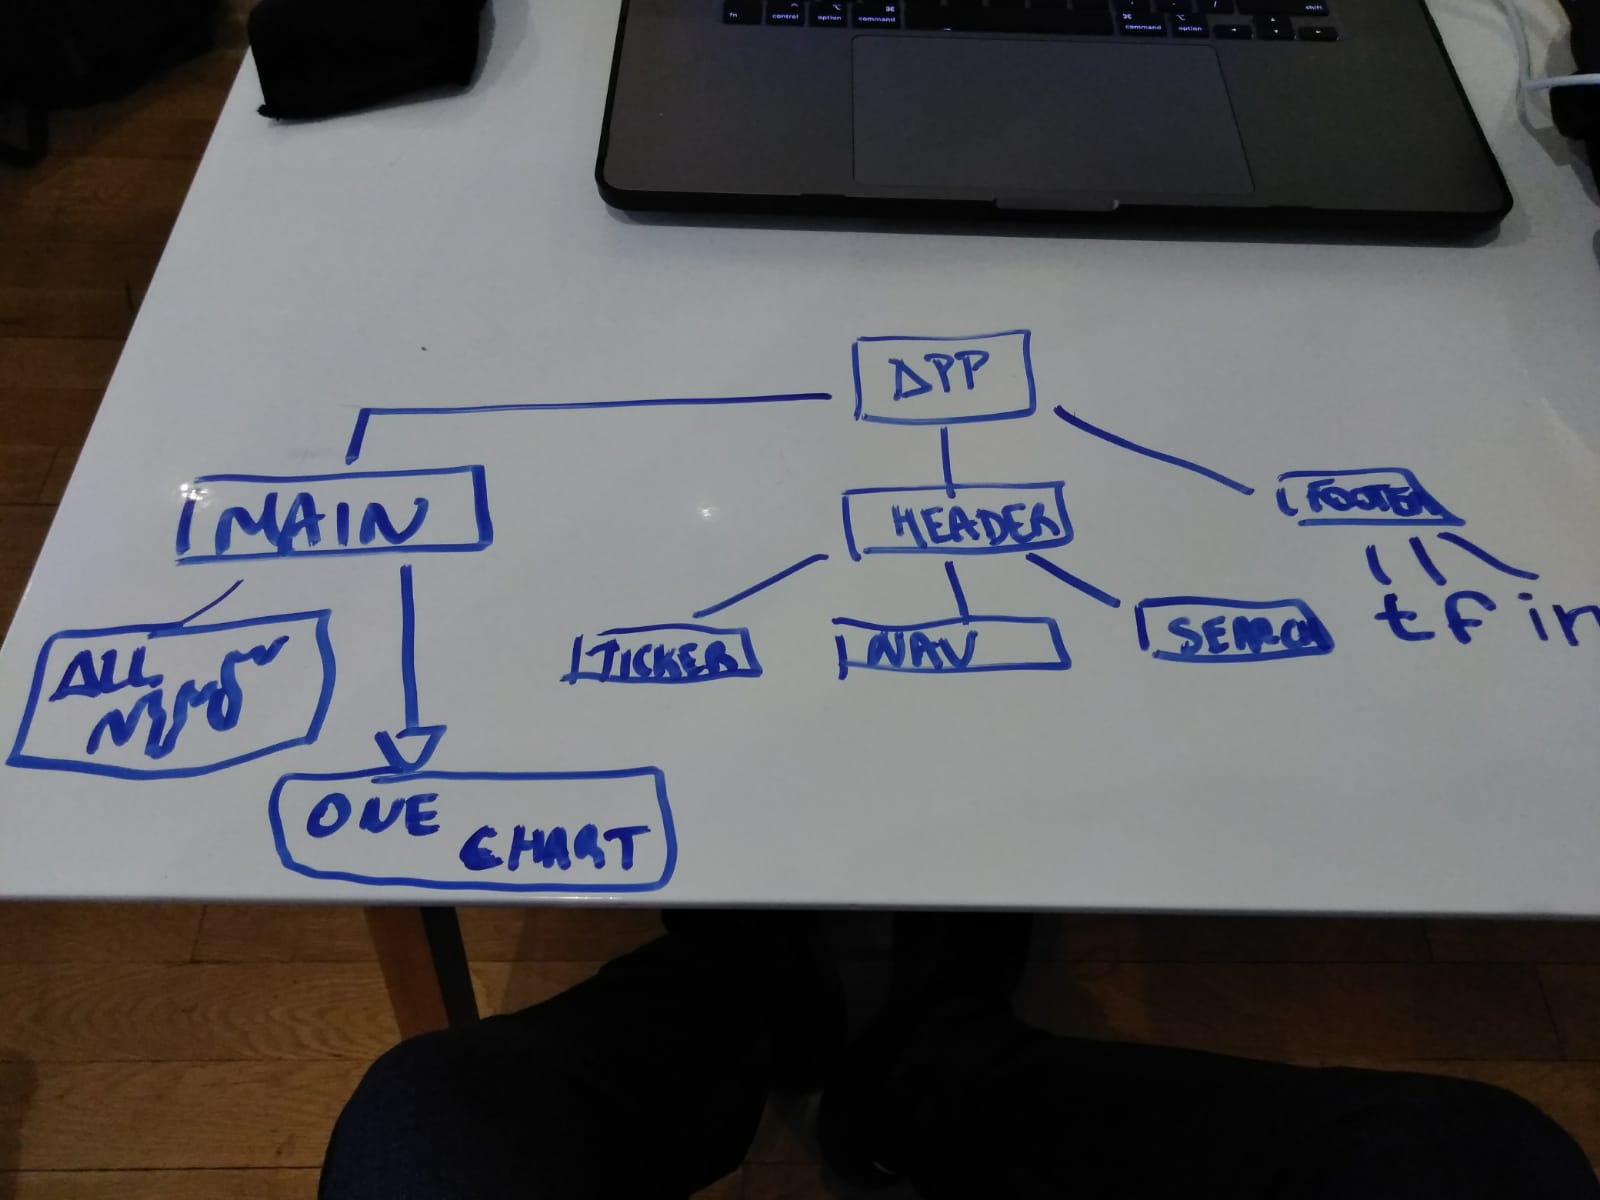 fn control option command
command option shift
APP
MAIN
HEADER
FOOTER
TICKER
NAV
SEARCH
t f in
ALL
ONE
CHART